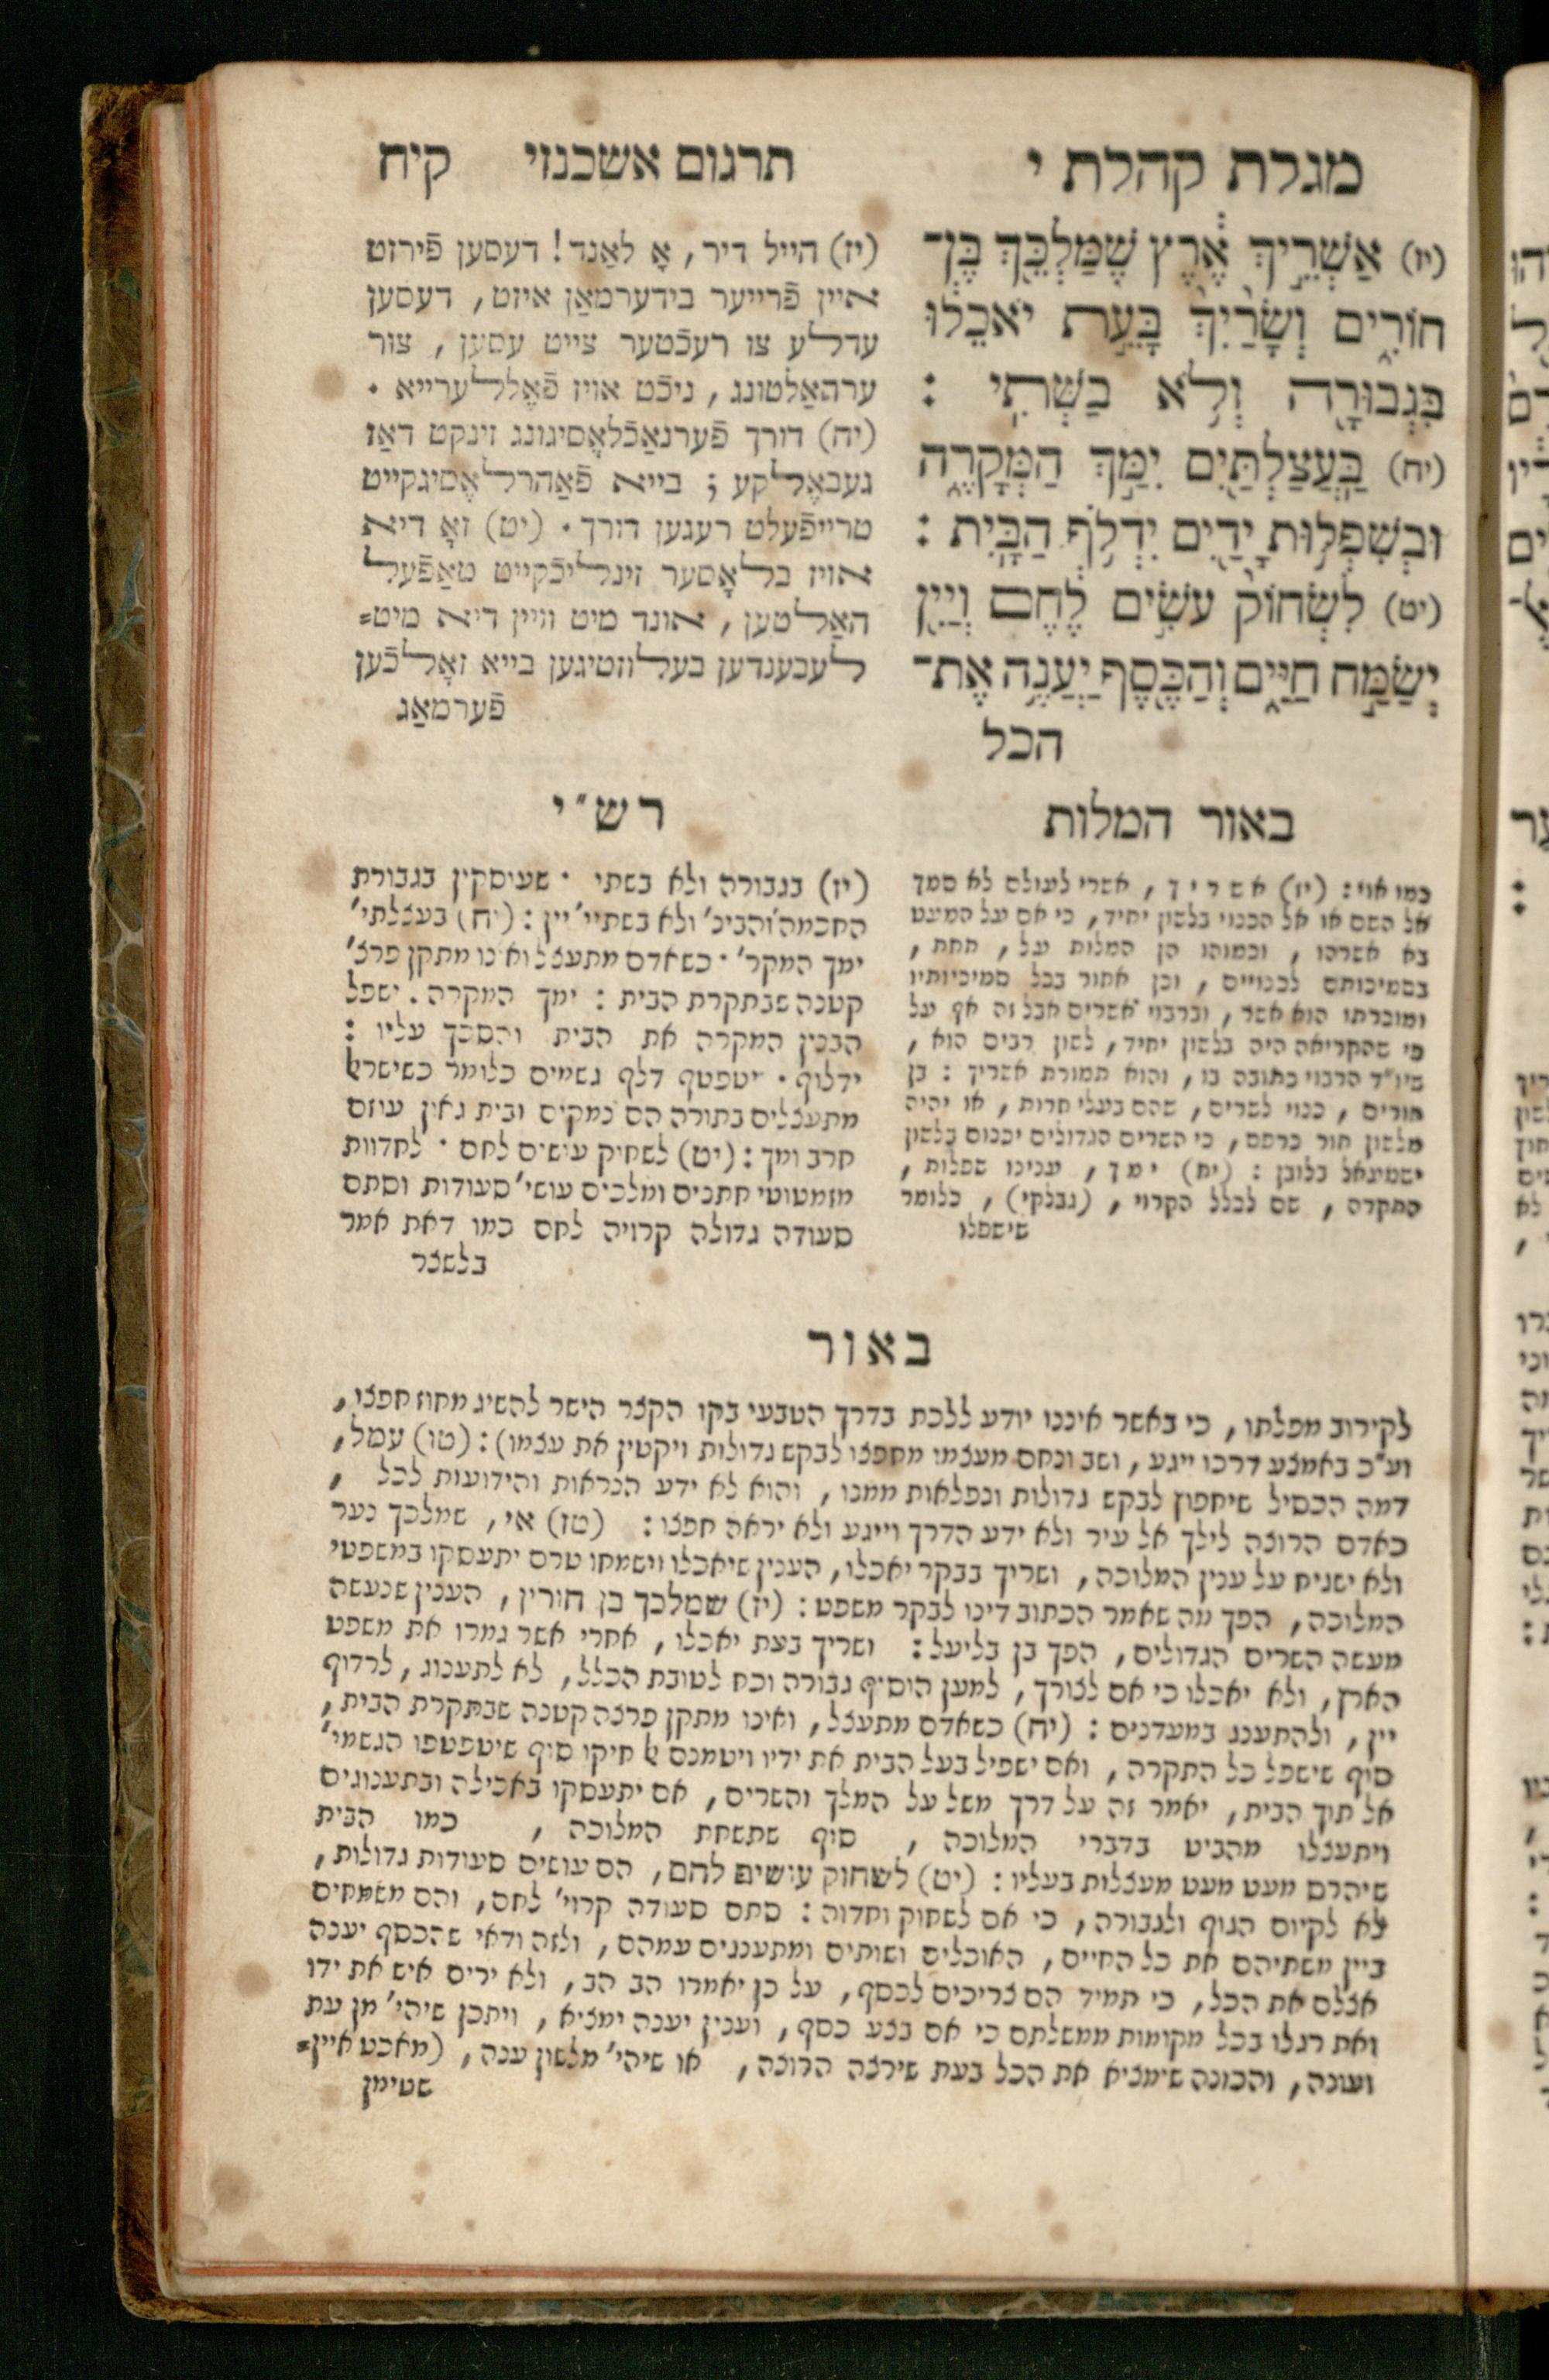 מגלת קהלת י
(יז) אַשְׁרֵ֣יךְ אֶ֔רֶץ שֶׁמַּלְכֵּ֖ךְ בֶּן־
חוֹרִ֑ים וְשָׂרַ֙יִךְ֙ בָּעֵ֣ת יֹאכֵ֔לוּ
בִּגְבוּרָ֖ה וְלֹ֥א בַשְּׁתִֽי :
(יח) בַּֽעֲצַלְתַּ֖יִם יִמַּ֣ךְ הַמְּקָרֶ֑ה
וּבְשִׁפְל֥וּת יָדַ֖יִם יִדְלֹ֥ף הַבָּֽיִת :
(יט) לִשְׂחוֹק֙ עֹשִׂ֣ים לֶ֔חֶם וְיַ֖יִן
יְשַׂמַּ֣ח חַיִּ֑ים וְהַכֶּ֖סֶף יַֽעֲנֶ֥ה אֶת־
הכל
תרגום אשכנזי קיח
(יז) הייל דיר, אָ לאַנד! דעסען פֿירזט
איין פֿרייער בידערמאַן איזט, דעסען
עדלע צו רעכֿטער צייט עסען, צור
ערהאַלטונג, ניכֿט אויז פֿאֶללערייא .
(יח) דורך פֿערנאַכֿלאֶסיגונג זינקט דאַז
געבאֶלקע; בייא פֿאַהרלאֶסיגקייט
טרייפֿעלט רעגען דורך. (יט) זאָ דיא
אויז בלאָסער זינליכֿקייט טאַפֿעל
האַלטען, אונד מיט וויין דיא מיט=
לעבענדען בעלוזטיגען בייא זאָלכֿען
פֿערמאַג
באור המלות
כמו אוי: (יז) אשריך, אשרי לעולם לא סמך
אל השם או אל הכנוי בלשון יחיד, כי אם על המעט
בא אשרהו, וכמוהו הן המלות על, תחת,
בסמיכותם לכנויים, וכן אחור בכל סמיכיותיו
ומוכרתו הוא אשר, וברבוי אשרים אבל זה אף על
פי שהקריאה היה בלשון יחיד, לשון רבים הוא,
שיו"ד הרבוי כתובה בו, והוא תמורת אשריך : בן
חורים, כנוי לשרים, שהם בעלי חרות, או יהיה
מלשון חור כרפס, כי השרים הגדולים יכנום בלשון
ישמעאל בלובן : (יח) ימך, ענינו שפלות,
המקרה, שם לכלל הקרוי, (געבלקי), כלומר
שישפלו
רש"י
(יז) בגבורה ולא בשתי . שעוסקין בגבורת
החכמה והבינ' ולא בשתיי' יין : (יח) בעצלתי'
ימך המקר' . כשאדם מתעצל ואינו מתקן פרצ'
קטנה שבתקרת הבית : ימך המקרה . ישפל
הבנין המקרה את הבית והסכך עליו :
ידלוף . יטפטף דלף גשמים כלומר כשישראל
מתעצלים בתורה הם נמקים ובית גאון עוזם
חרב ומך : (יט) לשחוק עושים לחם . לחדוות
מזמוטי חתנים ומלכים עושי' סעודות וסתם
סעודה גדולה קרויה לחם כמו דאת אמר
בלשצר
באור
לקירוב מפלתו, כי באשר איננו יודע ללכת בדרך הטבעי בקו הקצר הישר להשיג מחוז חפצו,
וע"כ באמצע דרכו ייגע, ושב ונחם מעצמו מחפצו לבקש גדולות ויקטין את עצמו): (טו) עמל,
דמה הכסיל שיחפוץ לבקש גדולות ונפלאות ממנו, והוא לא ידע הנראות והידועות לכל,
כאדם הרוצה לילך אל עיר ולא ידע הדרך וייגע ולא יראה חפצו: (טז) אי, שמלכך נער
ולא ישגיח על ענין המלוכה, ושריך בבקר יאכלו, הענין שיאכלו וישמחו טרם יתעסקו במשפטי
המלוכה, הפך מה שאמר הכתוב דינו לבקר משפט: (יז) שמלכך בן חורין, הענין שנעשה
מעשה השרים הגדולים, הפך בן בליעל: ושריך בעת יאכלו, אחרי אשר גמרו את משפט
הארץ, ולא יאכלו כי אם לצורך, למען הוסיף גבורה וכח לטובת הכלל, לא לתענוג, לרדוף
יין, ולהתענג במעדנים: (יח) כשאדם מתעצל, ואינו מתקן פרצה קטנה שבתקרת הבית,
סוף שישפל כל התקרה, ואם ישפיל בעל הבית את ידיו ויטמנם אל חיקו סוף שיטפטפו הגשמי'
אל תוך הבית, יאמר זה על דרך משל על המלך והשרים, אם יתעסקו באכילה ובתענוגים
ויתעצלו מהביט בדברי המלוכה, סוף שתשחת המלוכה, כמו הבית
שיהרס מעט מעט מעצלות בעליו: (יט) לשחוק עושים לחם, הם עושים סעודות גדולות,
לא לקיום הגוף ולגבורה, כי אם לשחוק וחדוה: סתם סעודה קרוי' לחם, והם משמחים
ביין משתיהם את כל החיים, האוכלים ושותים ומתענגים עמהם, ולזה ודאי שהכסף יענה
אצלם את הכל, כי תמיד הם צריכים לכסף, על כן יאמרו הב הב, ולא ירים איש את ידו
ואת רגלו בכל מקומות ממשלתם כי אם בצע כסף, וענין יענה ימציא, ויתכן שיהי' מן עת
ועונה, והכונה שימציא את הכל בעת שירצה הרוצה, או שיהי' מלשון ענה, (מאכט איין=
שטימן